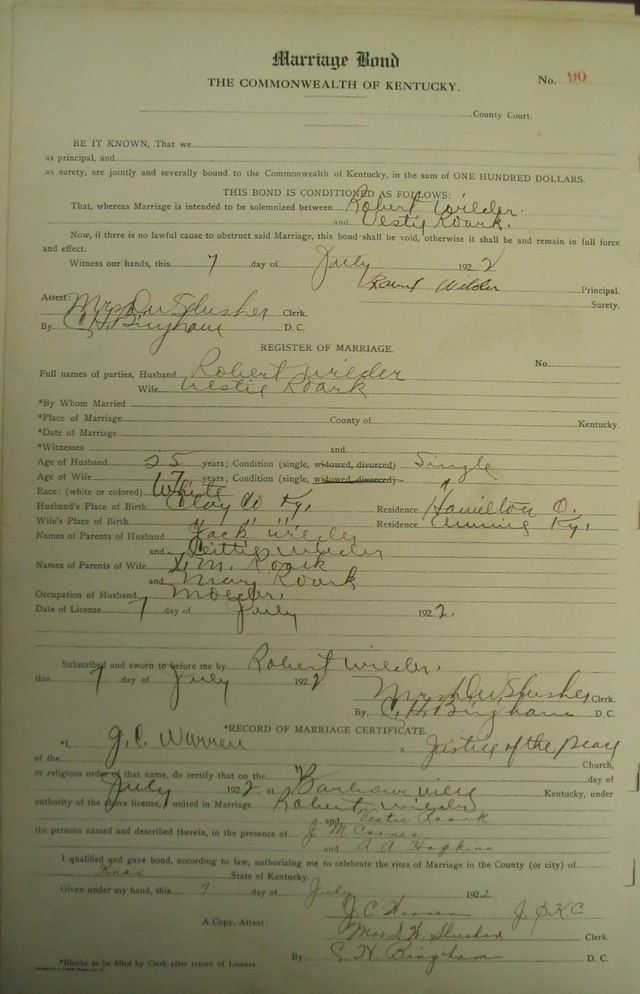 Marriage Bond
THE COMMONWEALTH OF KENTUCKY.
No. 90
County Court.
BE IT KNOWN, That we
as principal, and
as surety, are jointly and severally bound to the Commonwealth of Kentucky, in the sum of ONE HUNDRED DOLLARS.
THIS BOND IS CONDITIONED AS FOLLOWS:
That, whereas Marriage is intended to be solemnized between Robert Wilder.
and Vestie Roark.
Now, if there is no lawful cause to obstruct said Marriage, this bond shall be void, otherwise it shall be and remain in full force
and effect.
Witness our hands, this 7 day of July 1922
Wilder Principal.
Surety.
Attest: Mrs D W Slusher Clerk.
By C H Bingham D. C.
REGISTER OF MARRIAGE.
No.
Full names of parties, Husband Robert Wilder
Wife Vestie Roark
*By Whom Married
*Place of Marriage County of Kentucky.
*Date of Marriage
*Witnesses and
Age of Husband 25 years; Condition (single, widowed, divorced) Single
Age of Wife 17 years; Condition (single, widowed, divorced)
Race: (white or colored) White
Husband's Place of Birth Clay Co Ky, Residence Hamilton O.
Wife's Place of Birth " " " Residence Ky,
Names of Parents of Husband Jack Wilder
and Wilder
Names of Parents of Wife M. Roark
and Mary Roark
Occupation of Husband Molder.
Date of License 7 day of July 1922.
Subscribed and sworn to before me by Robert Wilder.
this 7 day of July 1922
Mrs D W Slusher Clerk.
By C. H. Bingham D. C.
*RECORD OF MARRIAGE CERTIFICATE.
*I, J. C. Warren a Justice of the Peace
of the Church,
or religious order of that name, do certify that on the 7 day of
July 1922 at Barbourville Kentucky, under
authority of the above license, united in Marriage Robert Wilder
and Vestie Roark
the persons named and described therein, in the presence of J M
and A A Hopkins
I qualified and gave bond, according to law, authorizing me to celebrate the rites of Marriage in the County (or city) of
Knox State of Kentucky.
Given under my hand, this 7 day of July 1922
J. C. Warren J. P. K C
A Copy, Attest: Mrs D. W. Slusher Clerk.
By C. H. Bingham D. C.
*Blanks to be filled by Clerk after return of License.